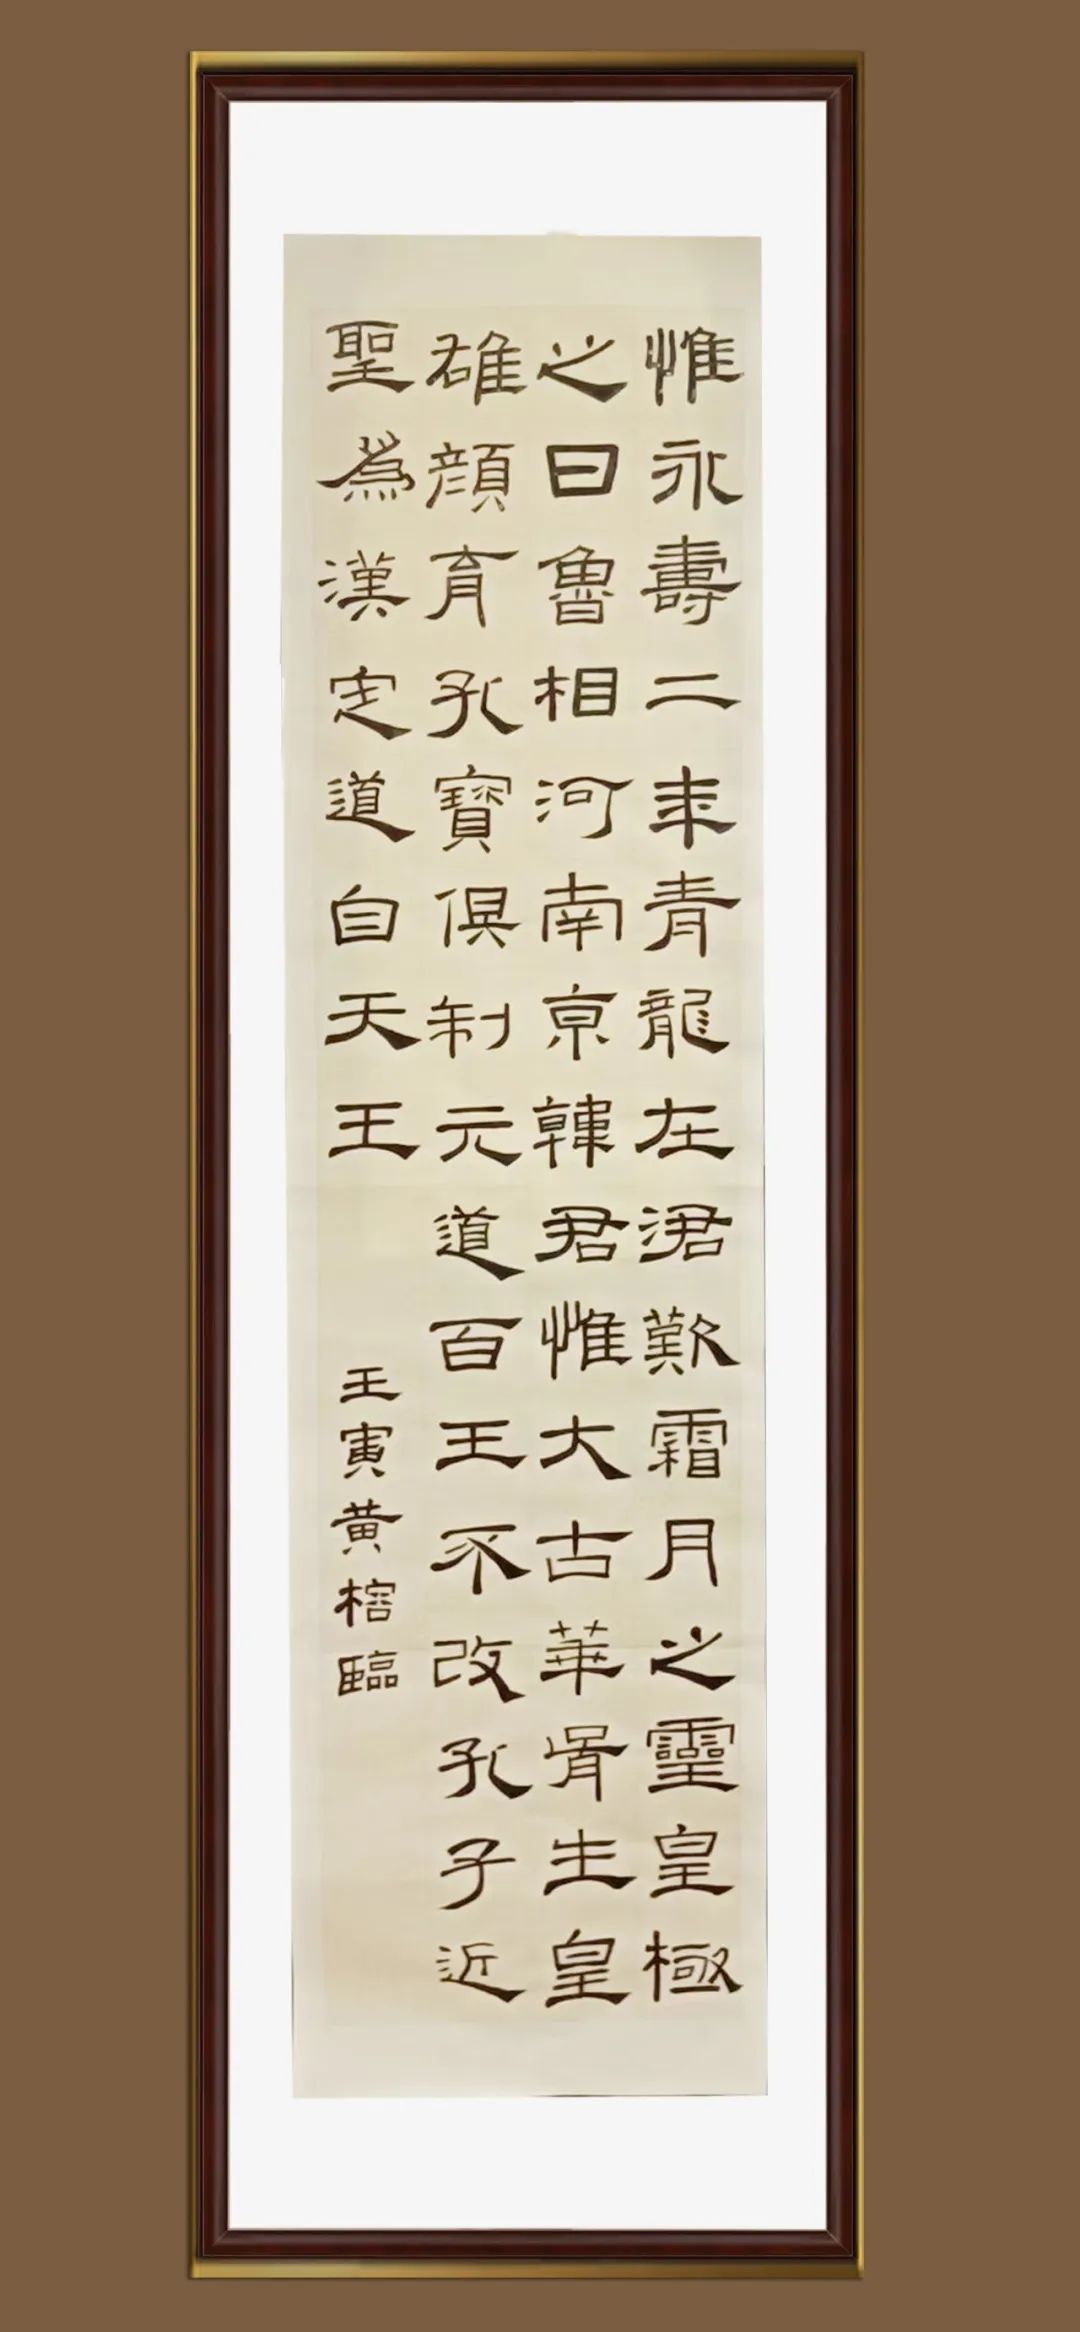 惟永壽二年青龍在涒歎霜月之靈皇極
之日魯相河南京韓君惟大古華胥生皇
雄顏育孔寶俱制元道百王不改孔子近
聖為漢定道自天王
壬寅黃榕臨